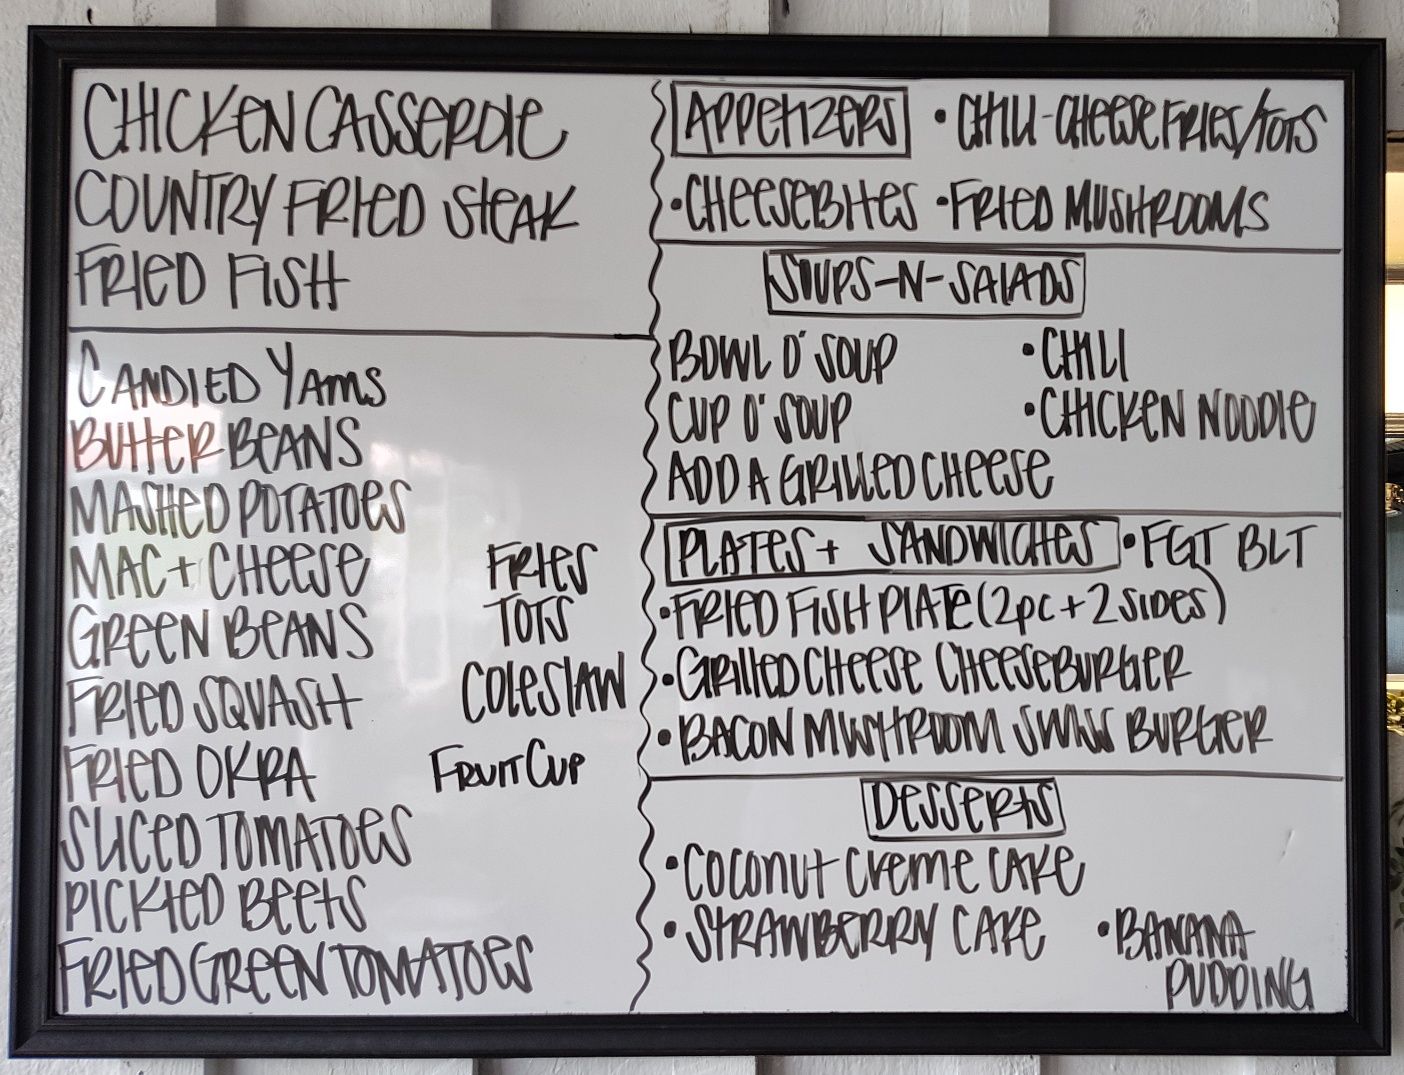 CHICKEN CASSEROLE
COUNTRY FRIED STEAK
FRIED FISH
CANDIED YAMS
BUTTER BEANS
MASHED POTATOES
MAC + CHEESE
GREEN BEANS
FRIED SQUASH
FRIED OKRA
SLICED TOMATOES
PICKLED BEETS
FRIED GREEN TOMATOES
FRIES
TOTS
COLESLAW
FRUIT CUP
APPETIZERS • CHILI-CHEESE FRIES/TOTS
• CHEESEBITES • FRIED MUSHROOMS
SOUPS-N-SALADS
BOWL O' SOUP • CHILI
CUP O' SOUP • CHICKEN NOODLE
ADD A GRILLED CHEESE
PLATES + SANDWICHES • FGT BLT
• FRIED FISH PLATE (2pc + 2 SIDES)
• GRILLED CHEESE CHEESEBURGER
• BACON MUSHROOM SWISS BURGER
DESSERTS
• COCONUT CREME CAKE
• STRAWBERRY CAKE • BANANA
PUDDING